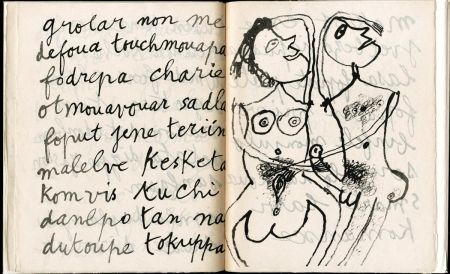 grolar non me
defoua touchmouapa
fodrepa charie
otmouavouar sadla
foput jene teriin
malelve kesketa
komvis tuchi
danlpo tan na
dutoupe tokuppa